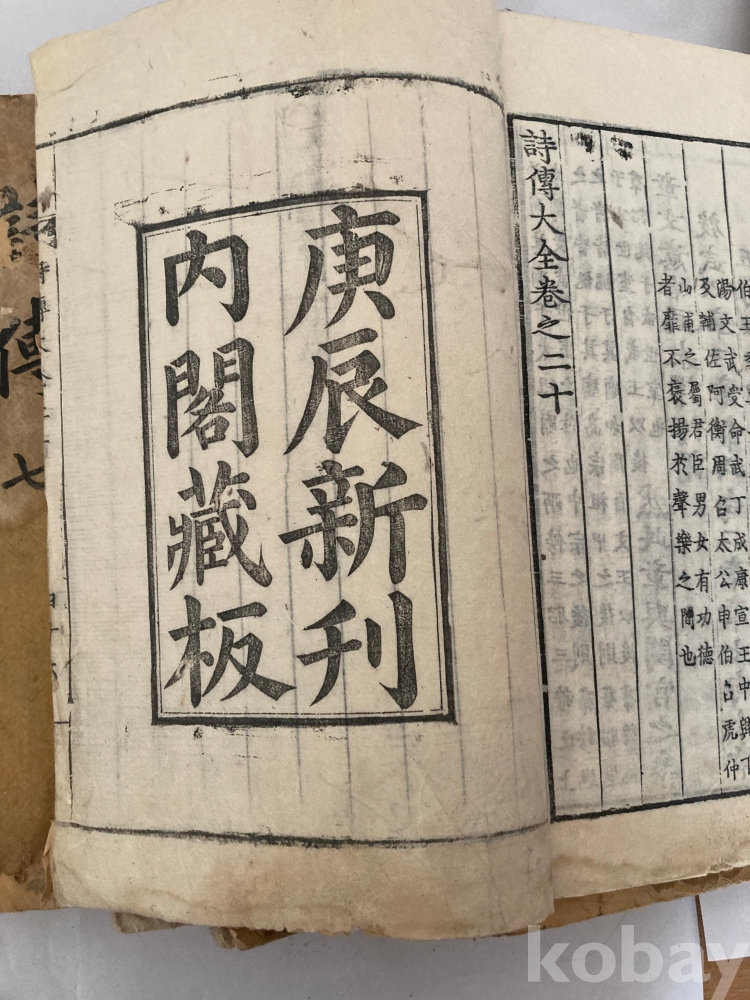 湯文武受命武丁成康宣王中興下
及輔佐阿衡周召太公申伯召虎仲
山甫之屬君臣男女有功德
者靡不褒揚於聲樂之間也
詩傳大全卷之二十
庚辰新刊
內閣藏板
詩傳 七
kobay